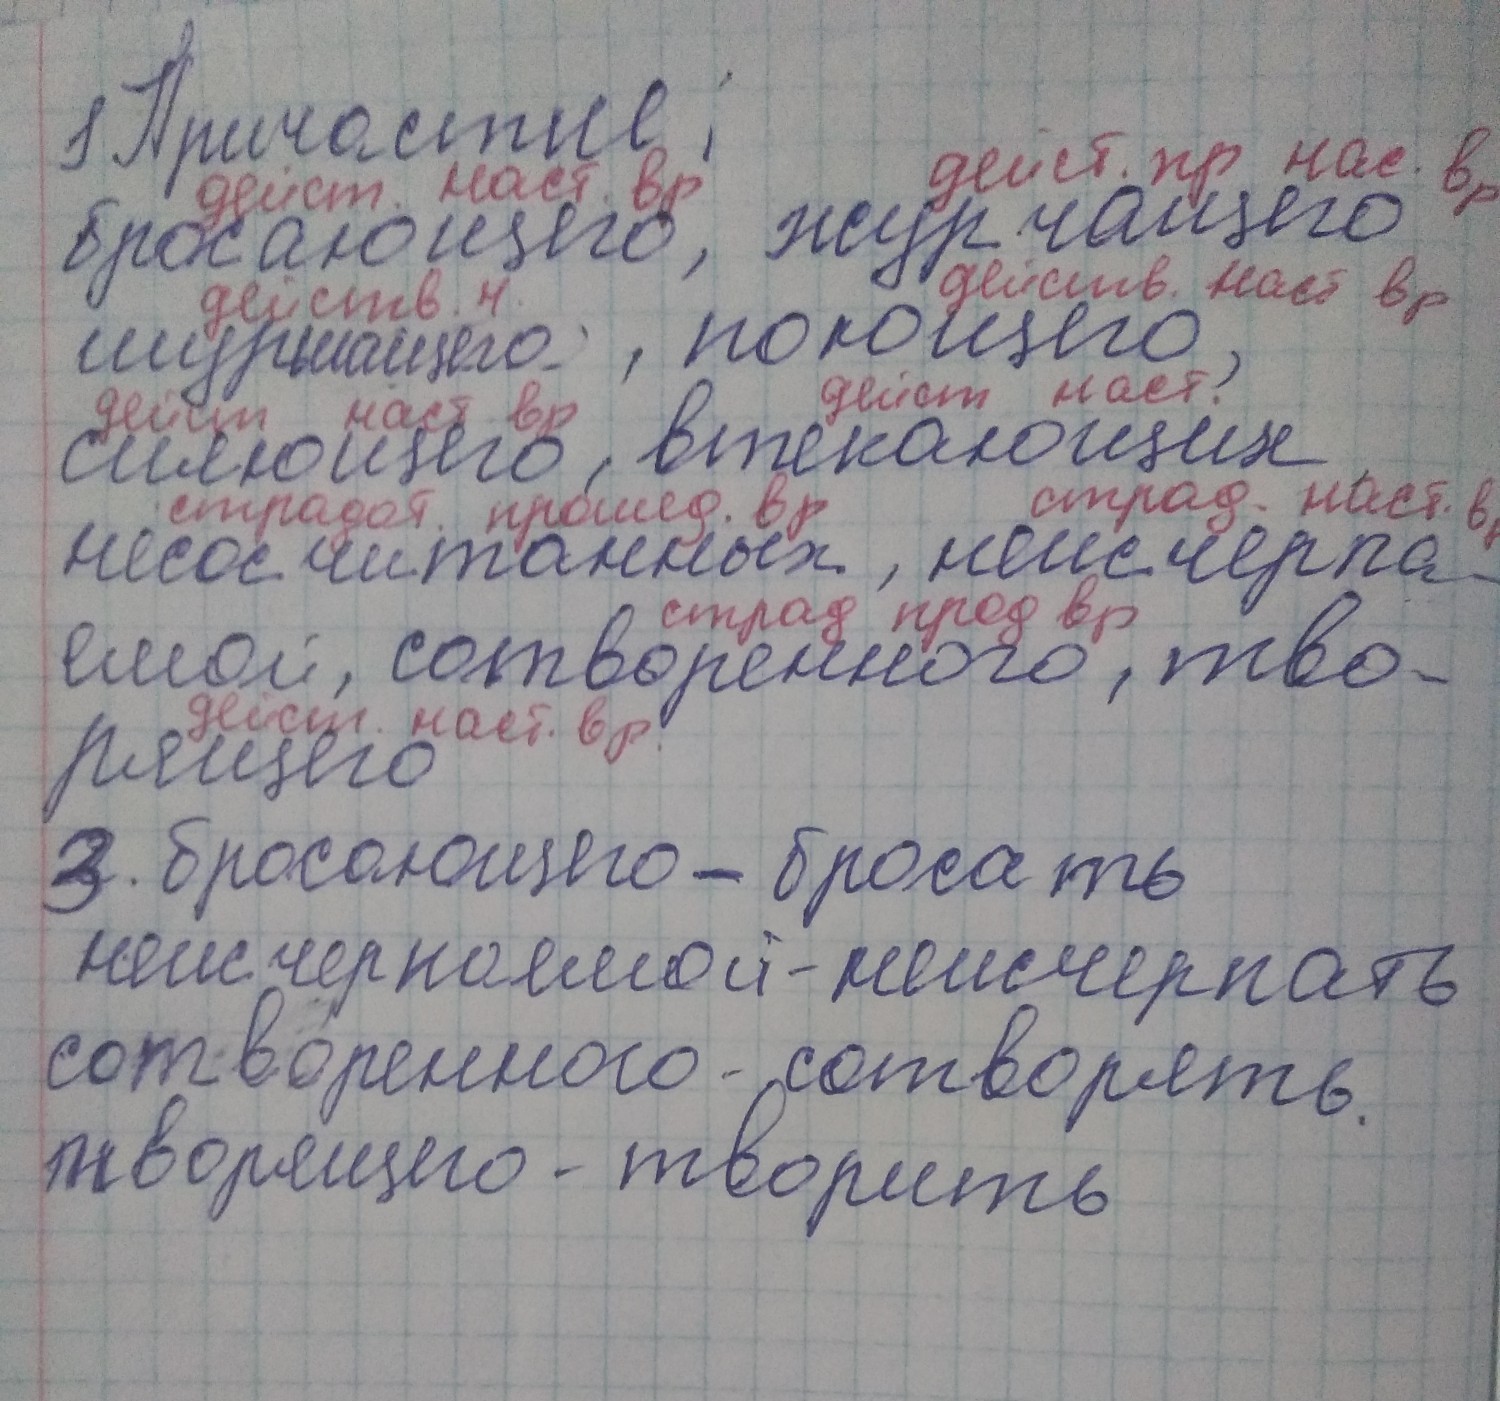 1 Причастие;
дейст. наст. вр дейст. пр нас. вр
бросающего, журчащего
действ. н. действ. наст вр
шуршащего, поющего,
дейст наст вр дейст наст.
сияющего, втекающих
страдат. прошед. вр страд. наст. вр
несосчитанных, неисчерпа-
страд прод вр
емой, сотворенного, тво-
дейст. наст. вр.
рящего
3. бросающего - бросать
неисчерпаемой - неисчерпать
сотворенного - сотворять.
творящего - творить